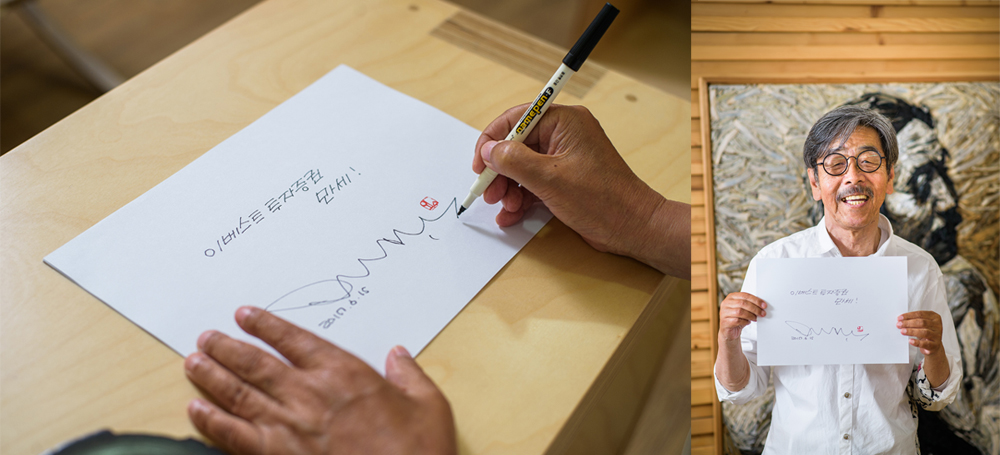 이베스트 투자증권
만세!
2017. 6. 15
namepen F
이베스트 투자증권
만세!
2017. 6. 15